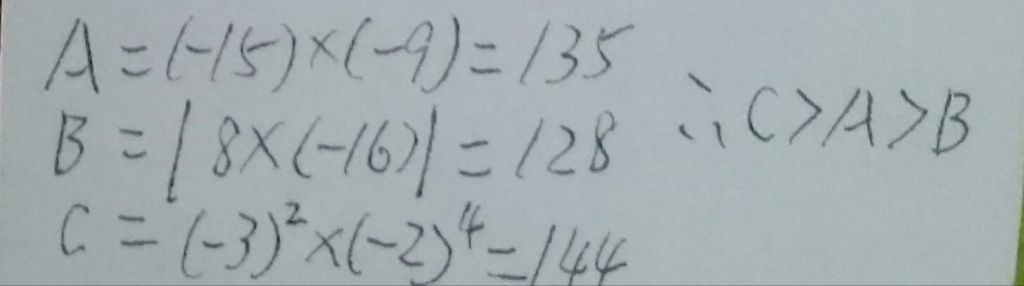 A = (-15)×(-9) = 135
B = |8×(-16)| = 128 ∴ C > A > B
C = (-3)²×(-2)⁴ = 144